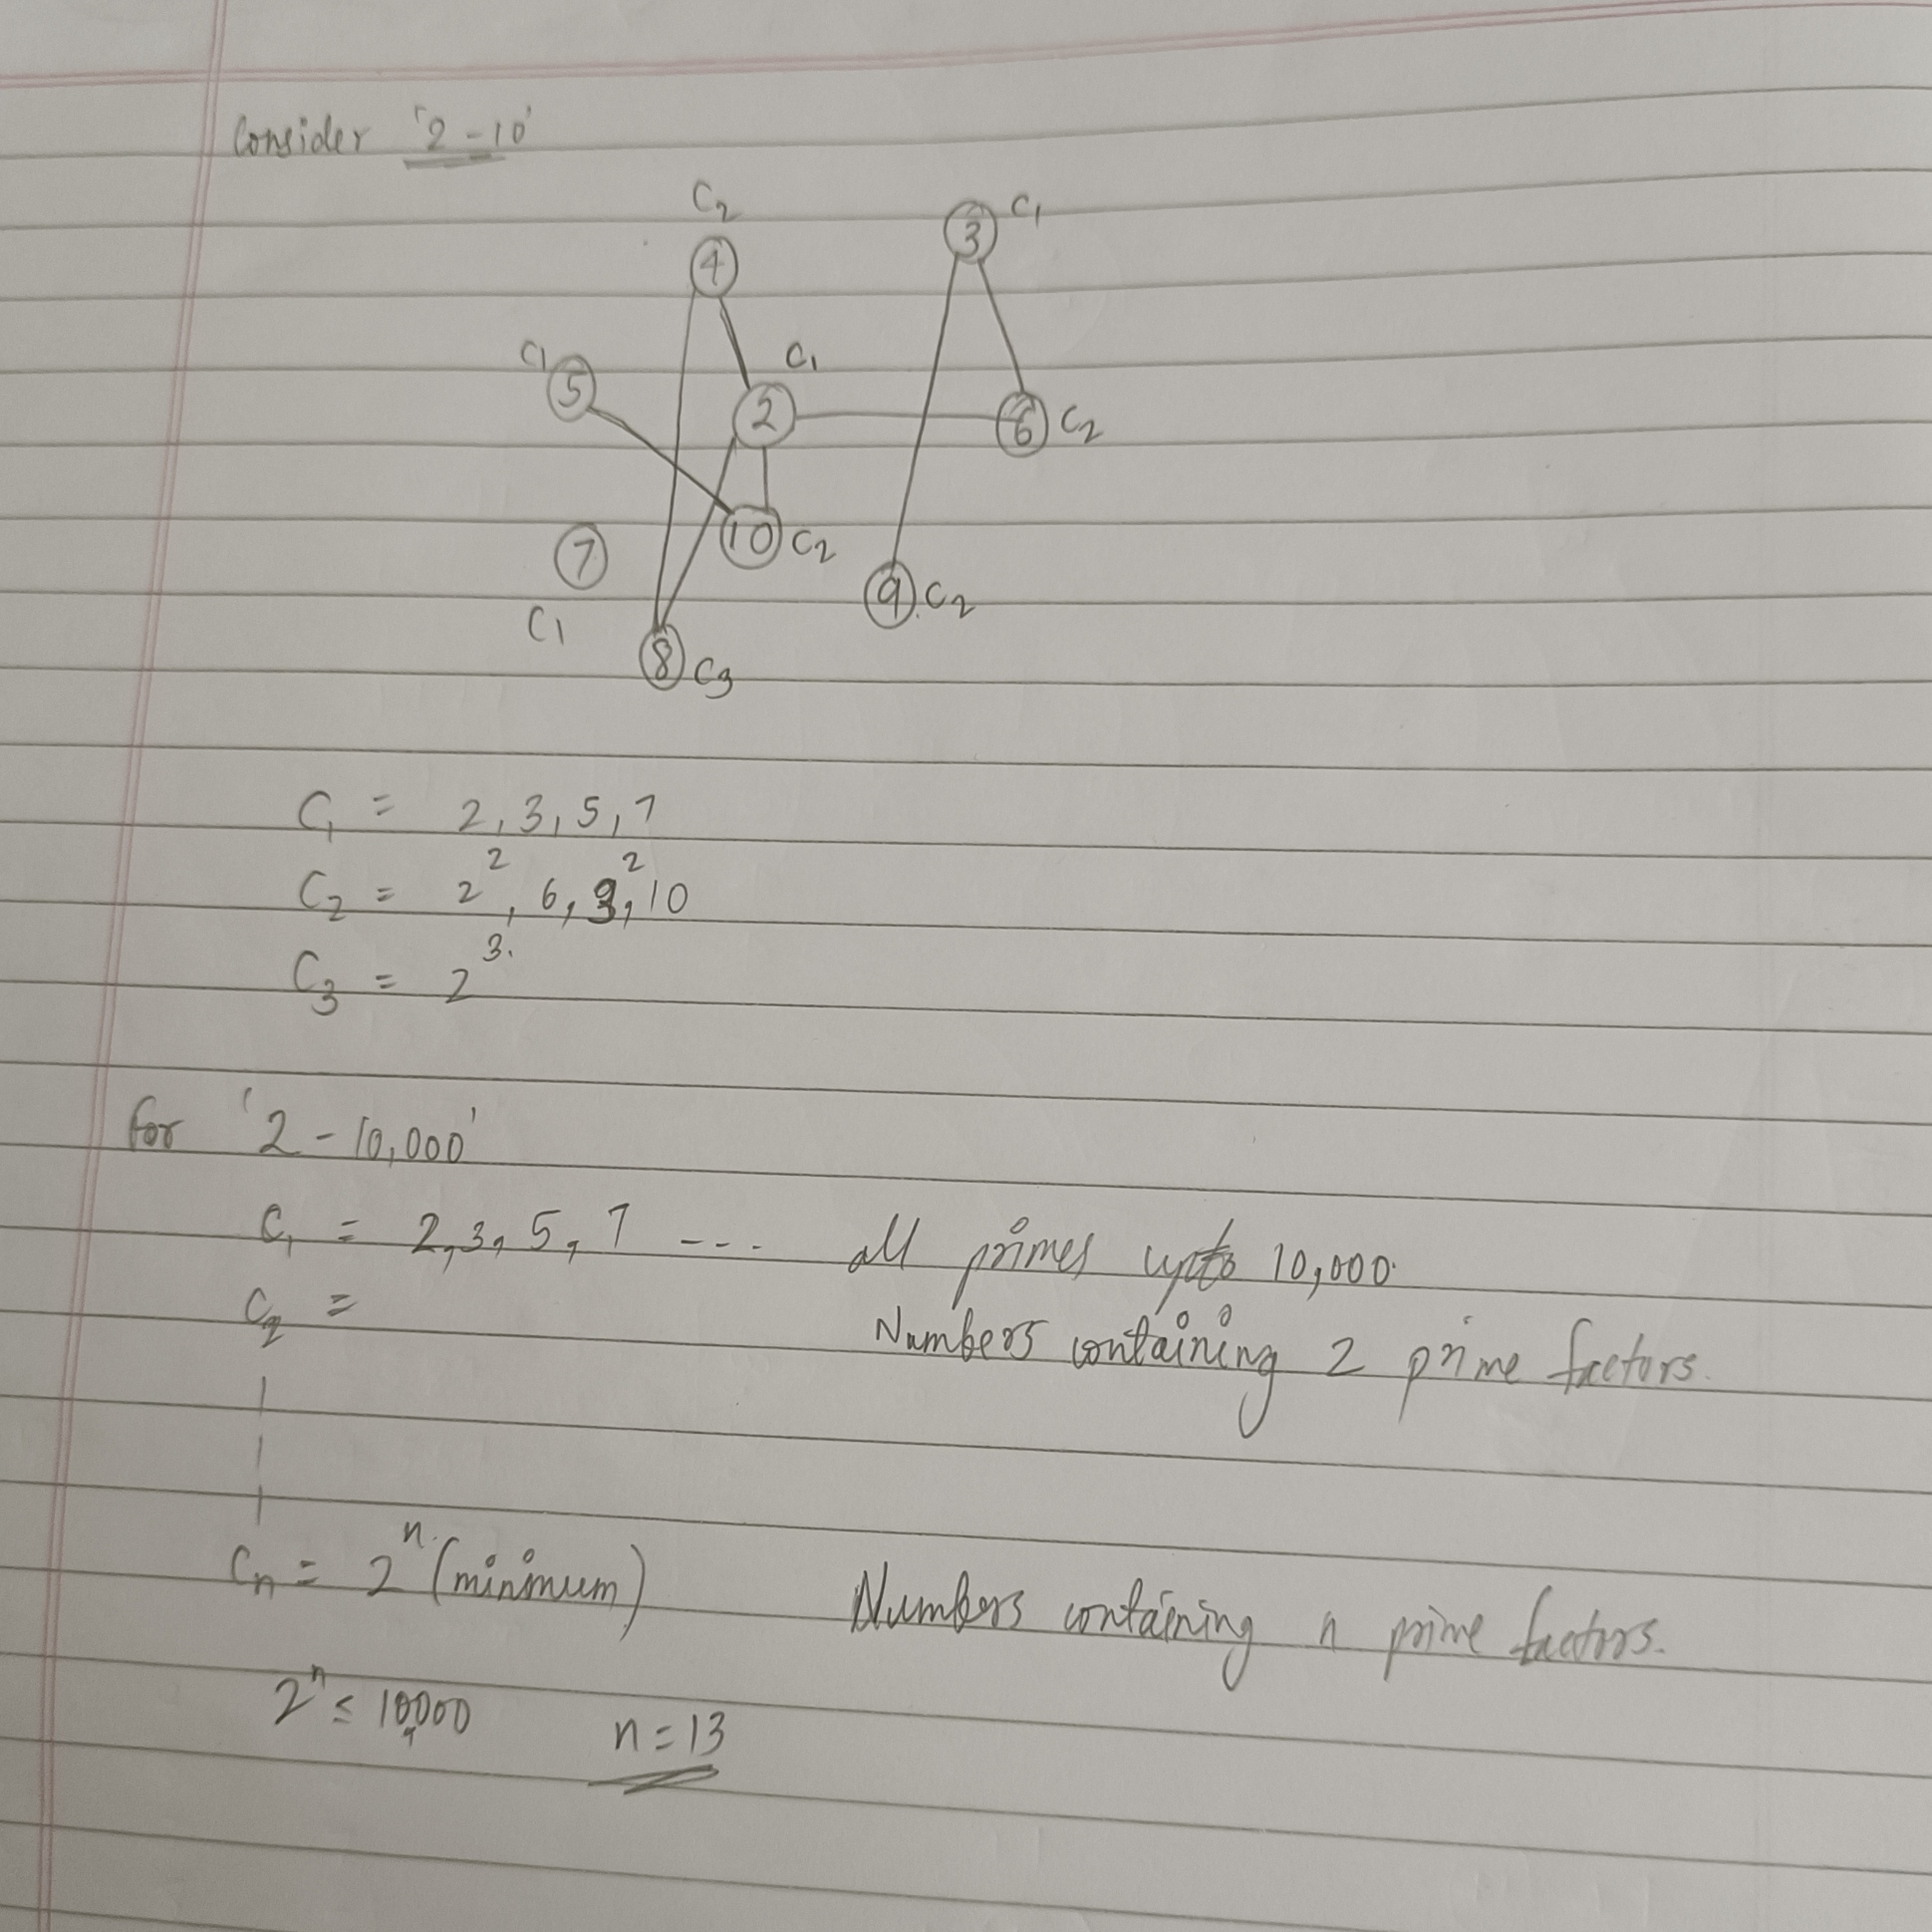 Consider '2-10'
C₂
3 C₁
4
C₁ 5
C₁
2
6 C₂
7
10 C₂
9 C₂
C₁
8 C₃
C₁ = 2, 3, 5, 7
C₂ = 2², 6, 3², 10
C₃ = 2³.
for '2-10,000'
C₁ = 2, 3, 5, 7 --- all primes upto 10,000.
C₂ = Numbers containing 2 prime factors.
Cₙ = 2ⁿ (minimum) Numbers containing n prime factors.
2ⁿ ≤ 10,000 n = 13